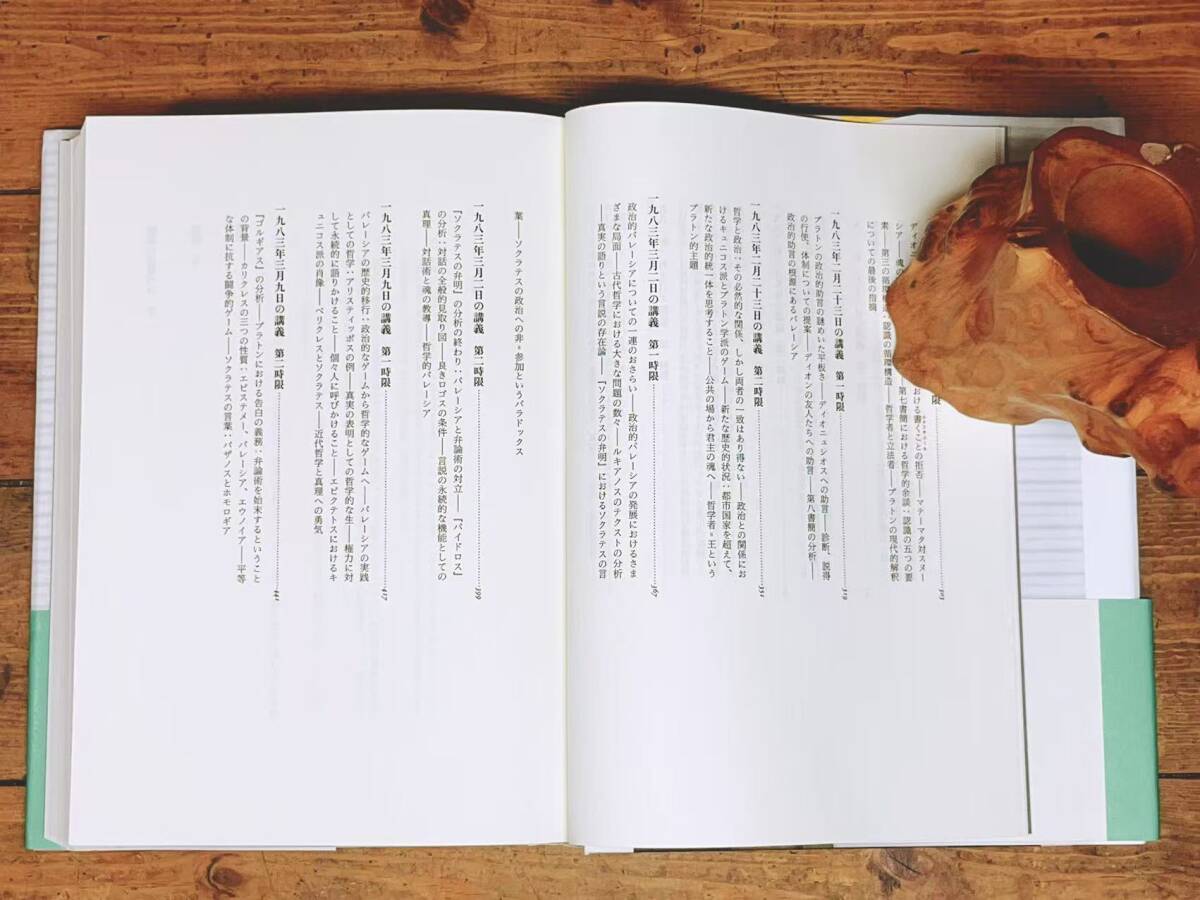 ディオ
おける書くことの拒否――マテーマタ対スヌー
シアー――魂の
第七書簡における哲学的余談：認識の五つの要
素――第三の循環
認識の循環構造――哲学者と立法者――プラトンの現代的解釈
についての最後の指摘
303
一九八三年二月二十三日の講義　第一時限
319
プラトンの政治的助言の謎めいた平板さ――ディオニュシオスへの助言――診断、説得
の行使、体制についての提案――ディオンの友人たちへの助言――第八書簡の分析――
政治的助言の根源にあるパレーシア
一九八三年二月二十三日の講義　第二時限
351
哲学と政治：その必然的な関係、しかし両者の一致はあり得ない――政治との関係にお
けるキュニコス派とプラトン学派のゲーム――新たな歴史的状況：都市国家を超えて、
新たな政治的統一体を思考すること――公共の場から君主の魂へ――哲学者＝王という
プラトン的主題
一九八三年三月二日の講義　第一時限
367
政治的パレーシアについての一連のおさらい――政治的パレーシアの発展におけるさま
ざまな局面――古代哲学における大きな問題の数々――ルキアノスのテクストの分析
――真実の語りという言説の存在論――『ソクラテスの弁明』におけるソクラテスの言
葉――ソクラテスの政治への非＝参加というパラドックス
一九八三年三月二日の講義　第二時限
399
『ソクラテスの弁明』の分析の終わり：パレーシアと弁論術の対立――『パイドロス』
の分析：対話の全般的見取り図――良きロゴスの条件――言説の永続的な機能としての
真理――対話術と魂の教導――哲学的パレーシア
一九八三年三月九日の講義　第一時限
417
パレーシアの歴史的移行：政治的なゲームから哲学的なゲームへ――パレーシアの実践
としての哲学：アリスティッポスの例――真実の表明としての哲学的な生――権力に対
して永続的に語りかけること――個々人に呼びかけること――エピクテトスにおけるキ
ュニコス派の肖像――ペリクレスとソクラテス――近代哲学と真理への勇気
一九八三年三月九日の講義　第二時限
441
『ゴルギアス』の分析――プラトンにおける告白の義務：弁論術を始末するということ
の背景――カリクレスの三つの性質：エピステーメー、パレーシア、エウノイア――平等
な体制に抗する闘争的ゲーム――ソクラテスの言葉：バザノスとホモロギア